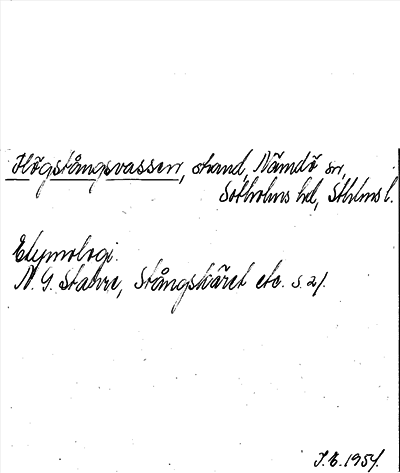 Högstångsvassen, strand, Nämdö sn,
Sotholms hd, Sthlms l.
Etymologi.
N. G. Stahre, Stångskäret etc. s. 21.
J. E. 1954.